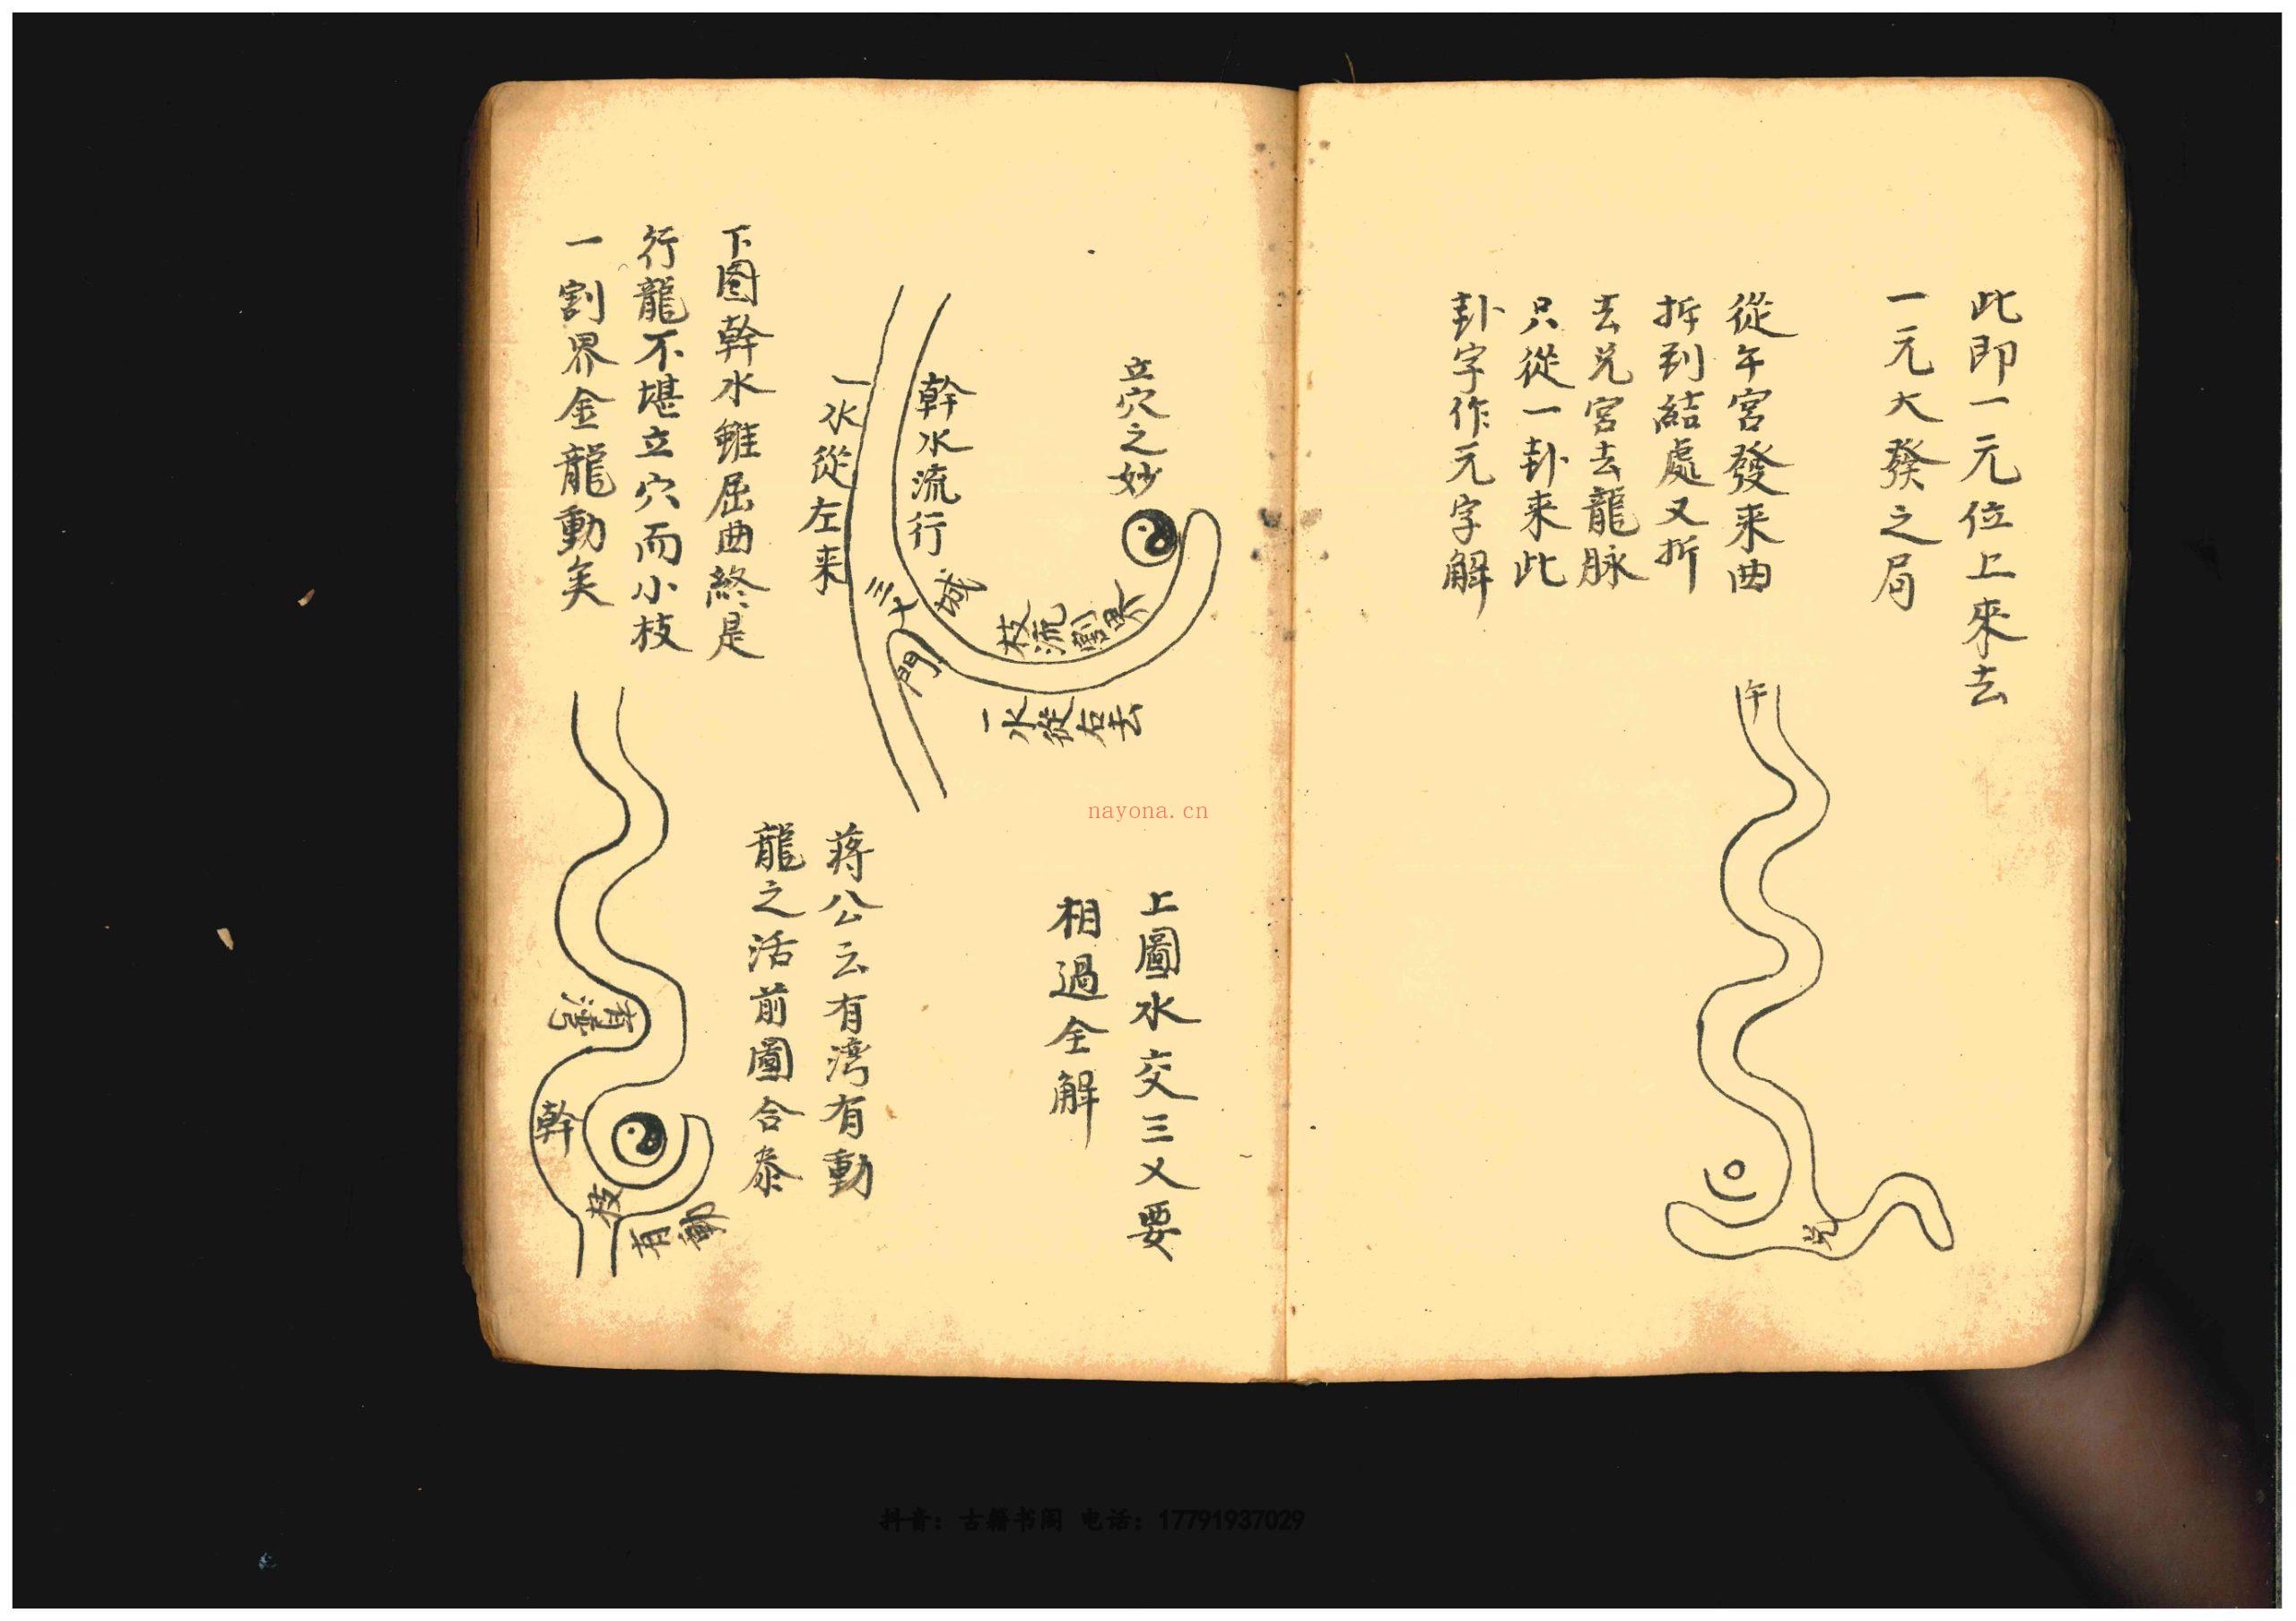 此即一元位上來去
一元大發之局
從午宮發来曲
折到結處又折
去兑宮去龍脉
只從一卦来此
卦字作元字解
午
兑
立穴之妙
幹水流行
一水從左来
三叉
城
門
枝流割界
一水從右去
上圖水交三叉要
相過全解
蒋公云有湾有動
龍之活前圖合叅
下图幹水雖屈曲終是
行龍不堪立穴而小枝
一割界金龍動矣
有湾
幹
枝
有動
nayona.cn
抖音：古籍书阁 电话：17791937029